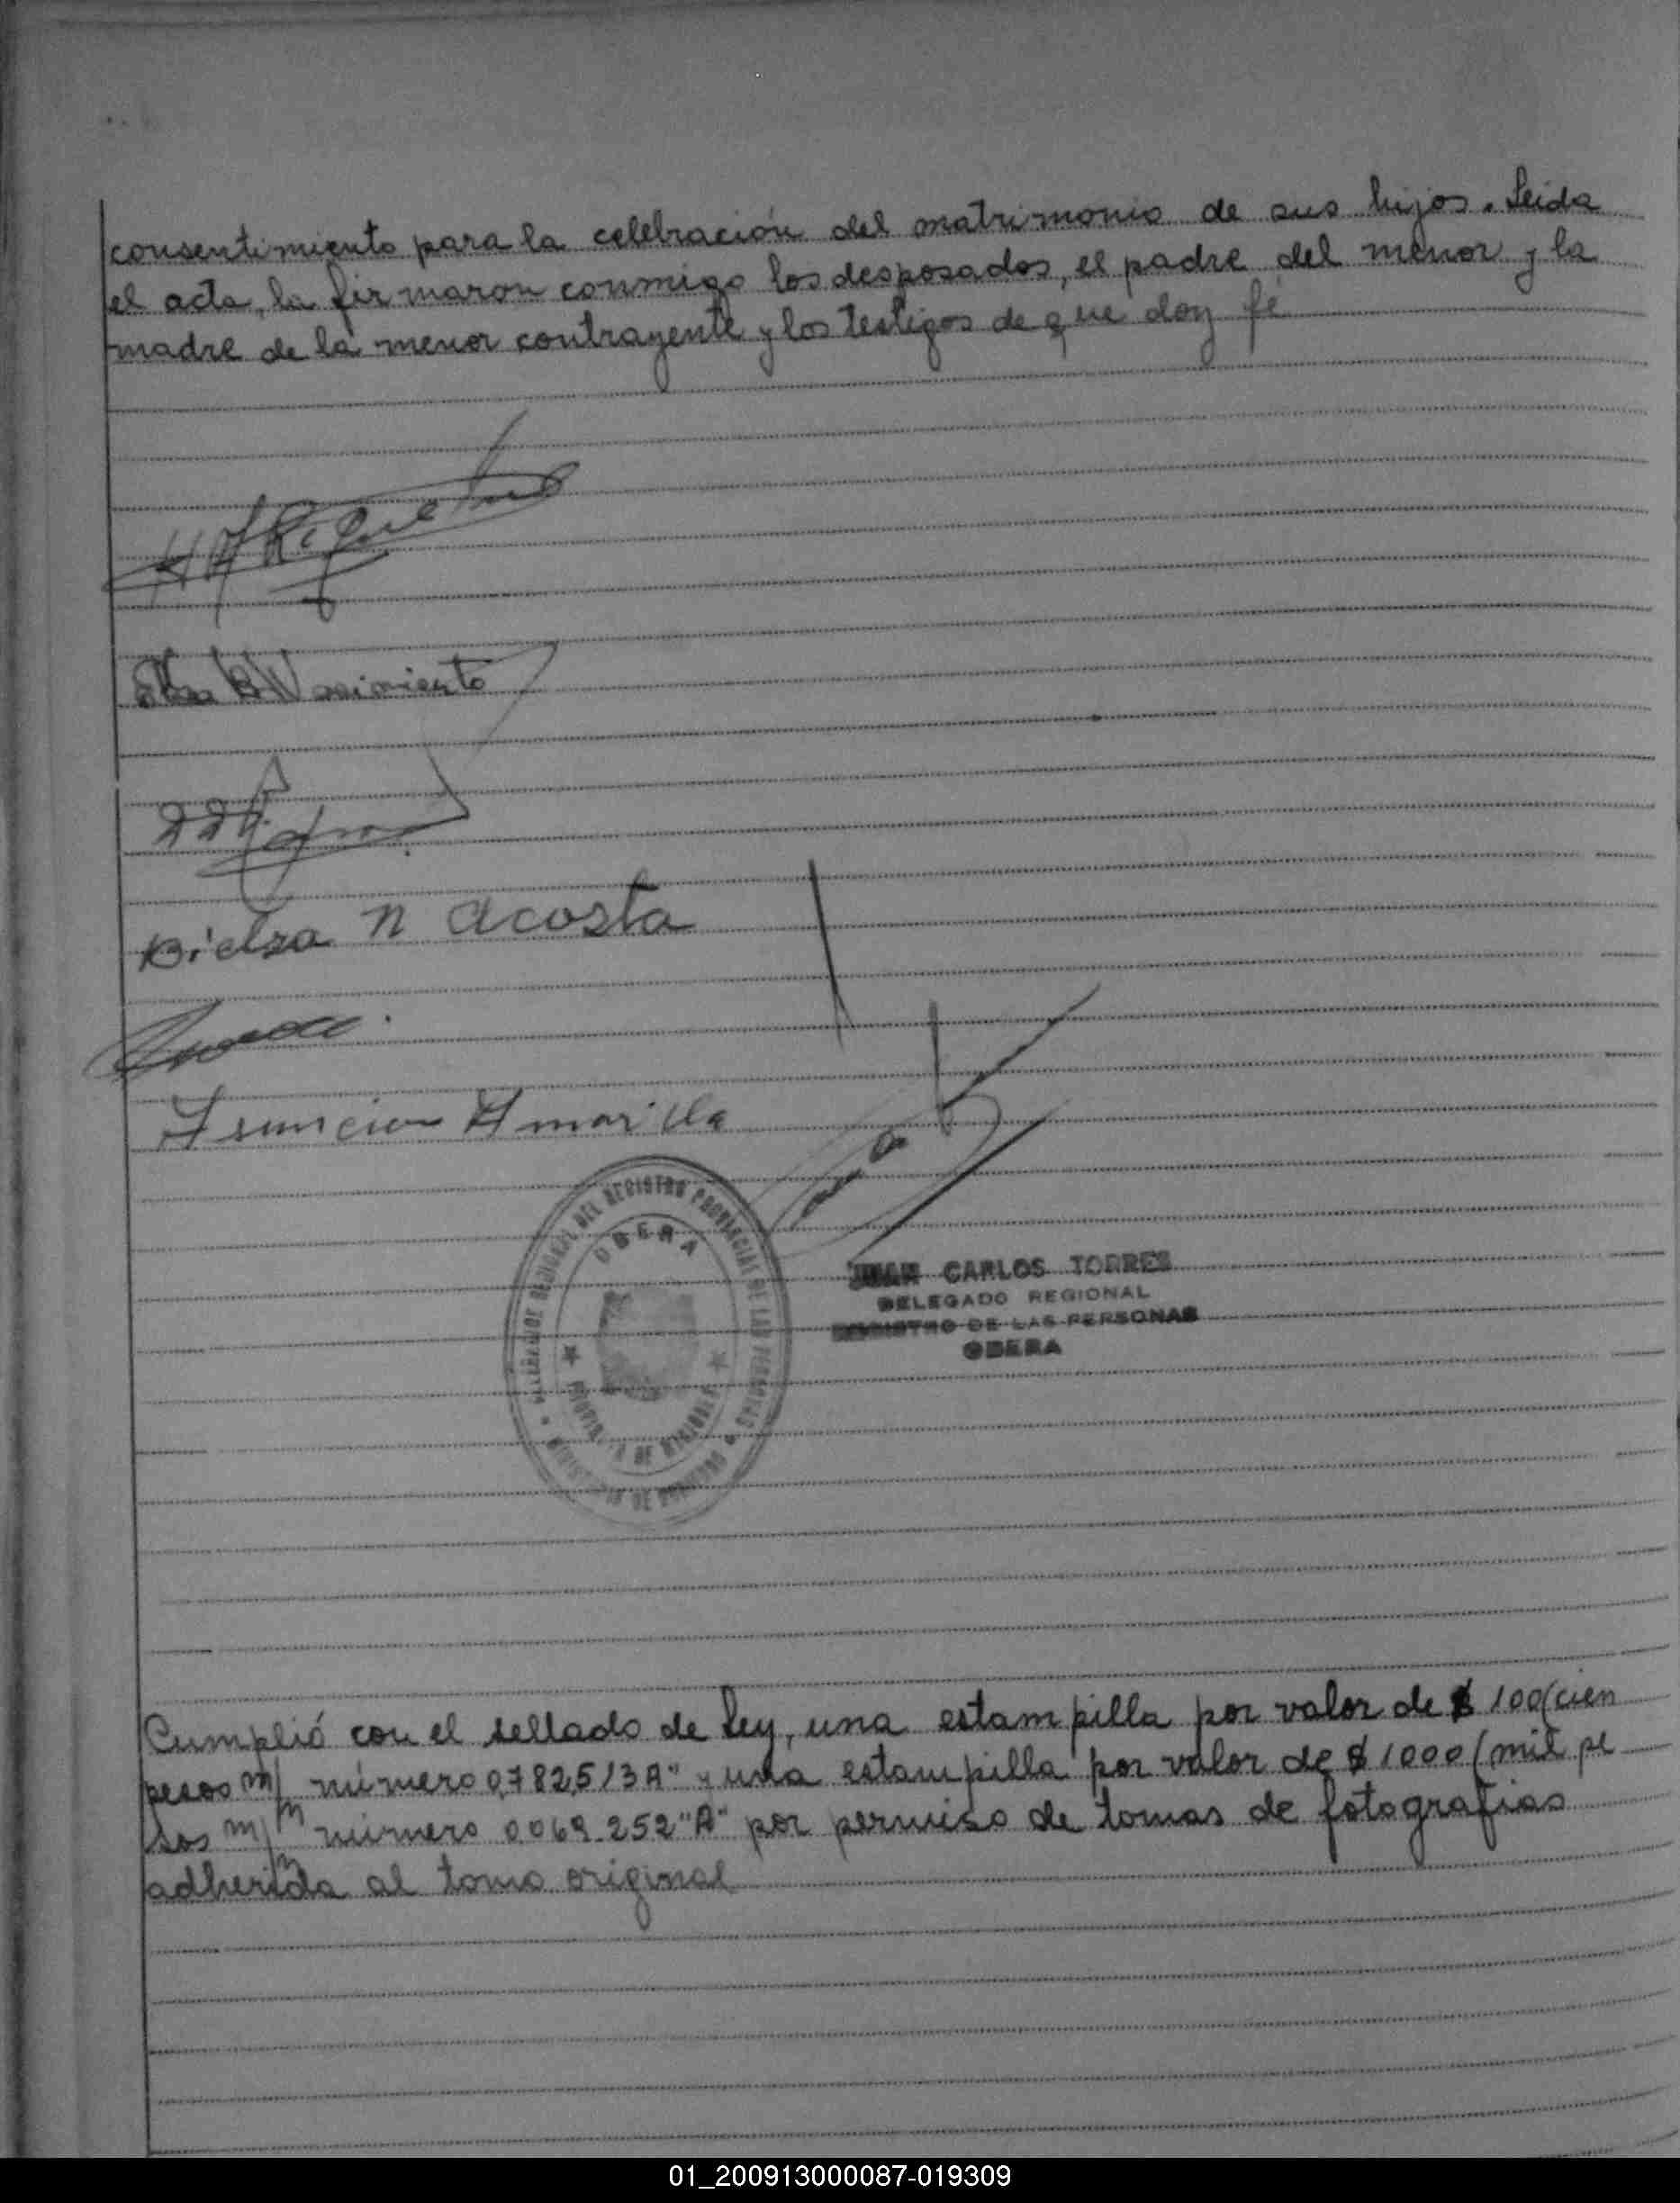 consentimiento para la celebración del matrimonio de sus hijos. Leida
el acta, la firmaron conmigo los desposados, el padre del menor y la
madre de la menor contrayente y los testigos de que doy fé
B Nacimiento
Bielsa N Acosta
Asuncion Amarilla
DEL REGISTRO PROVINCIAL DE LAS PERSONAS
OBERA
PROVINCIA DE MISIONES
MINISTERIO DE GOBIERNO
JUAN CARLOS TORRES
DELEGADO REGIONAL
REGISTRO DE LAS PERSONAS
OBERA
Cumplió con el sellado de Ley, una estampilla por valor de $ 100(cien
pesos m/ número 0,782,513 A" y una estampilla por valor de $ 1000 (mil pe
sos m/m número 0069.252 "A" por permiso de tomas de fotografias
adherida al tomo original
01_200913000087-019309